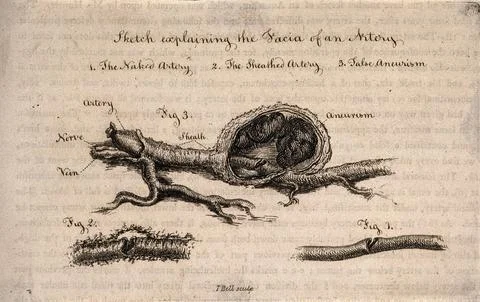 Sketch explaining the Facia of an Artery
1. The Naked Artery. 2. The Sheathed Artery 3. False Aneurism
Artery
Fig 3.
Aneurism
Nerve
Sheath
Vein
Fig 2.
Fig 1.
I Bell sculp